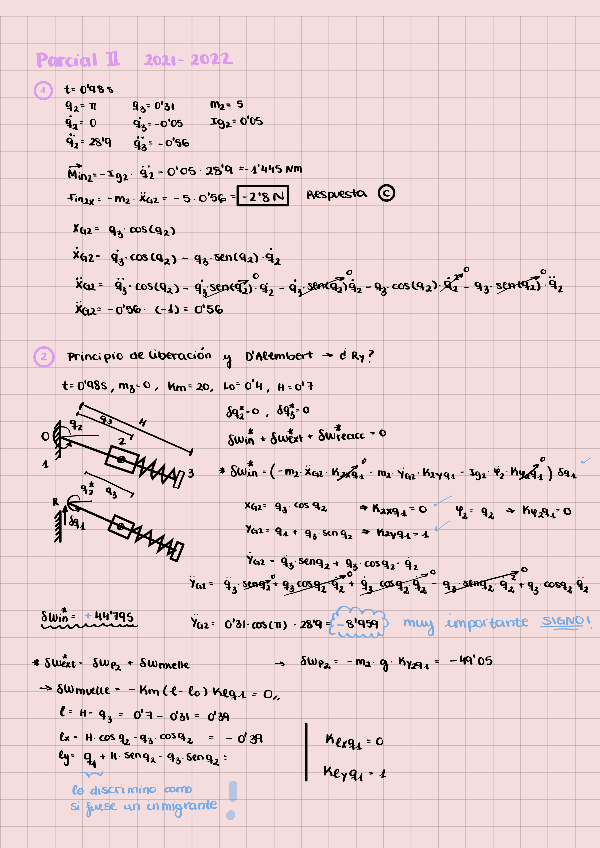 Parcial II 2021-2022
① t= 0'98s
q2= π q3= 0'31 m2= 5
q̇2= 0 q̇3= -0'05 Ig2= 0'05
q̈2= 28'9 q̈3= -0'56
Min2= -Ig2 · q̈2 = -0'05 · 28'9 = -1'445 Nm
Fin2x = -m2 · ẍG2 = -5 · 0'56 = -2'8 N Respuesta Ⓒ
xG2= q3 · cos(q2)
ẋG2= q̇3 · cos(q2) - q3 · sen(q2) · q̇2
ẍG2= q̈3 · cos(q2) - q̇3 · sen(q2) · q̇2 - q̇3 · sen(q2) q̇2 - q3 · cos(q2) · q̇2 · q̇2 - q3 · sen(q2) · q̈2
ẍG2= -0'56 · (-1) = 0'56
② Principio de liberación y D'Alembert → ¿ Ry?
t= 0'98s, m3=0, Km= 20, Lo= 0'4, H= 0'7
δq2*=0, δq3*=0
δWin* + δWext* + δWreacc* = 0
O q2 q3 H 2 1 3
* δWin* = (-m2 · ẍG2 · K2xq1 - m2 · ÿG2 · K2yq1 - Ig2 · φ̈2 · Kφ2q1) δq1
R δq1 q2* q3
xG2= q3 · cos q2 ⇒ K2xq1 = 0 φ2 = q2 ⇒ Kφ2q1=0
YG2= q1 + q3 sen q2 ⇒ K2yq1 = 1
ẎG2= q̇3 · senq2 + q3 · cosq2 · q̇2
ŸG2= q̈3 · senq2 + q̇3 cosq2 · q̇2 + q̇3 · cosq2 · q̇2 - q3 · senq2 · q̇2² + q3 · cosq2 q̈2
δWin* = +44'795 ŸG2= 0'31·cos(π) · 28'9 = -8'959 muy importante SIGNO!
* δWext* = δWP2 + δWmuelle → δWP2 = -m2 · g · Ky2q1 = -49'05
→ δWmuelle = -Km (l-lo) Klq1 = 0,,
l = H - q3 = 0'7 - 0'31 = 0'39
lx = H · cos q2 - q3 · cos q2 = -0'39 Klxq1 = 0
ly= q1 + H · senq2 - q3 · senq2 = Klyq1 = 1
lo discrimino como
si fuese un inmigrante !